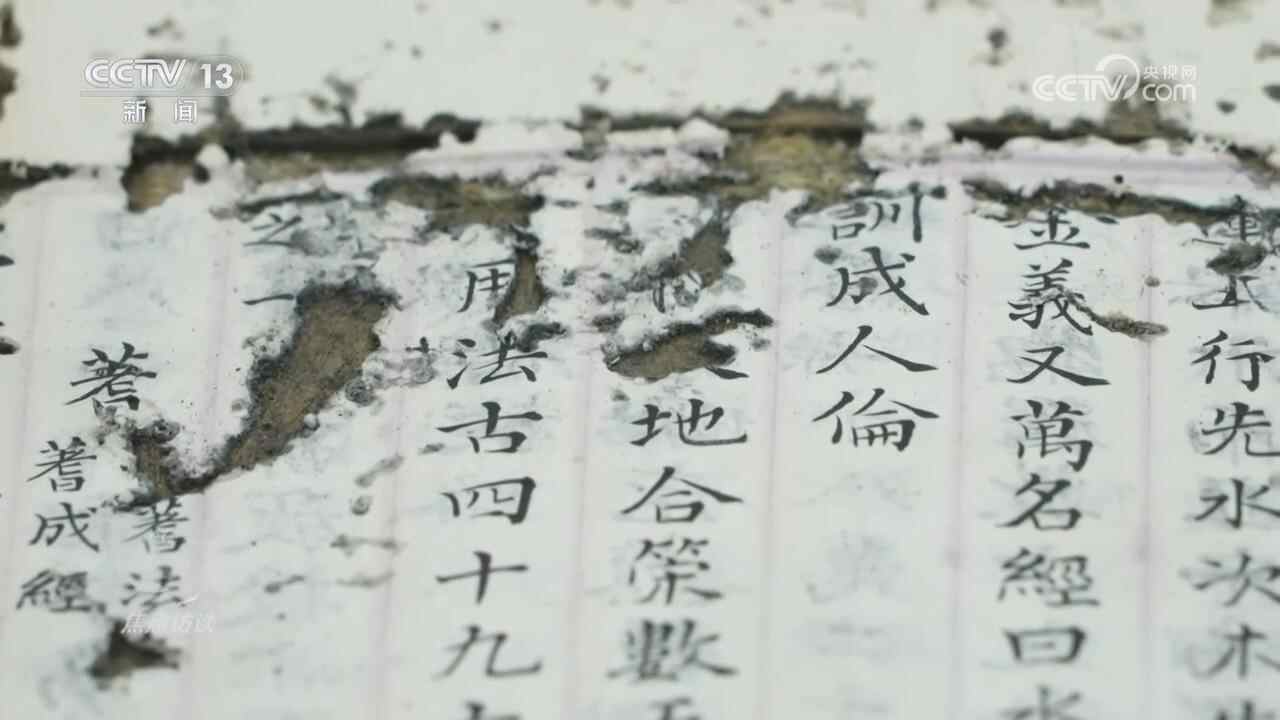 CCTV 13
新闻
央视网
CCTV.com
行先水次木
金義又萬名經曰水
訓成人倫
地合䇿數五
用法古四十九
之一
蓍
蓍法
蓍成經
焦点访谈